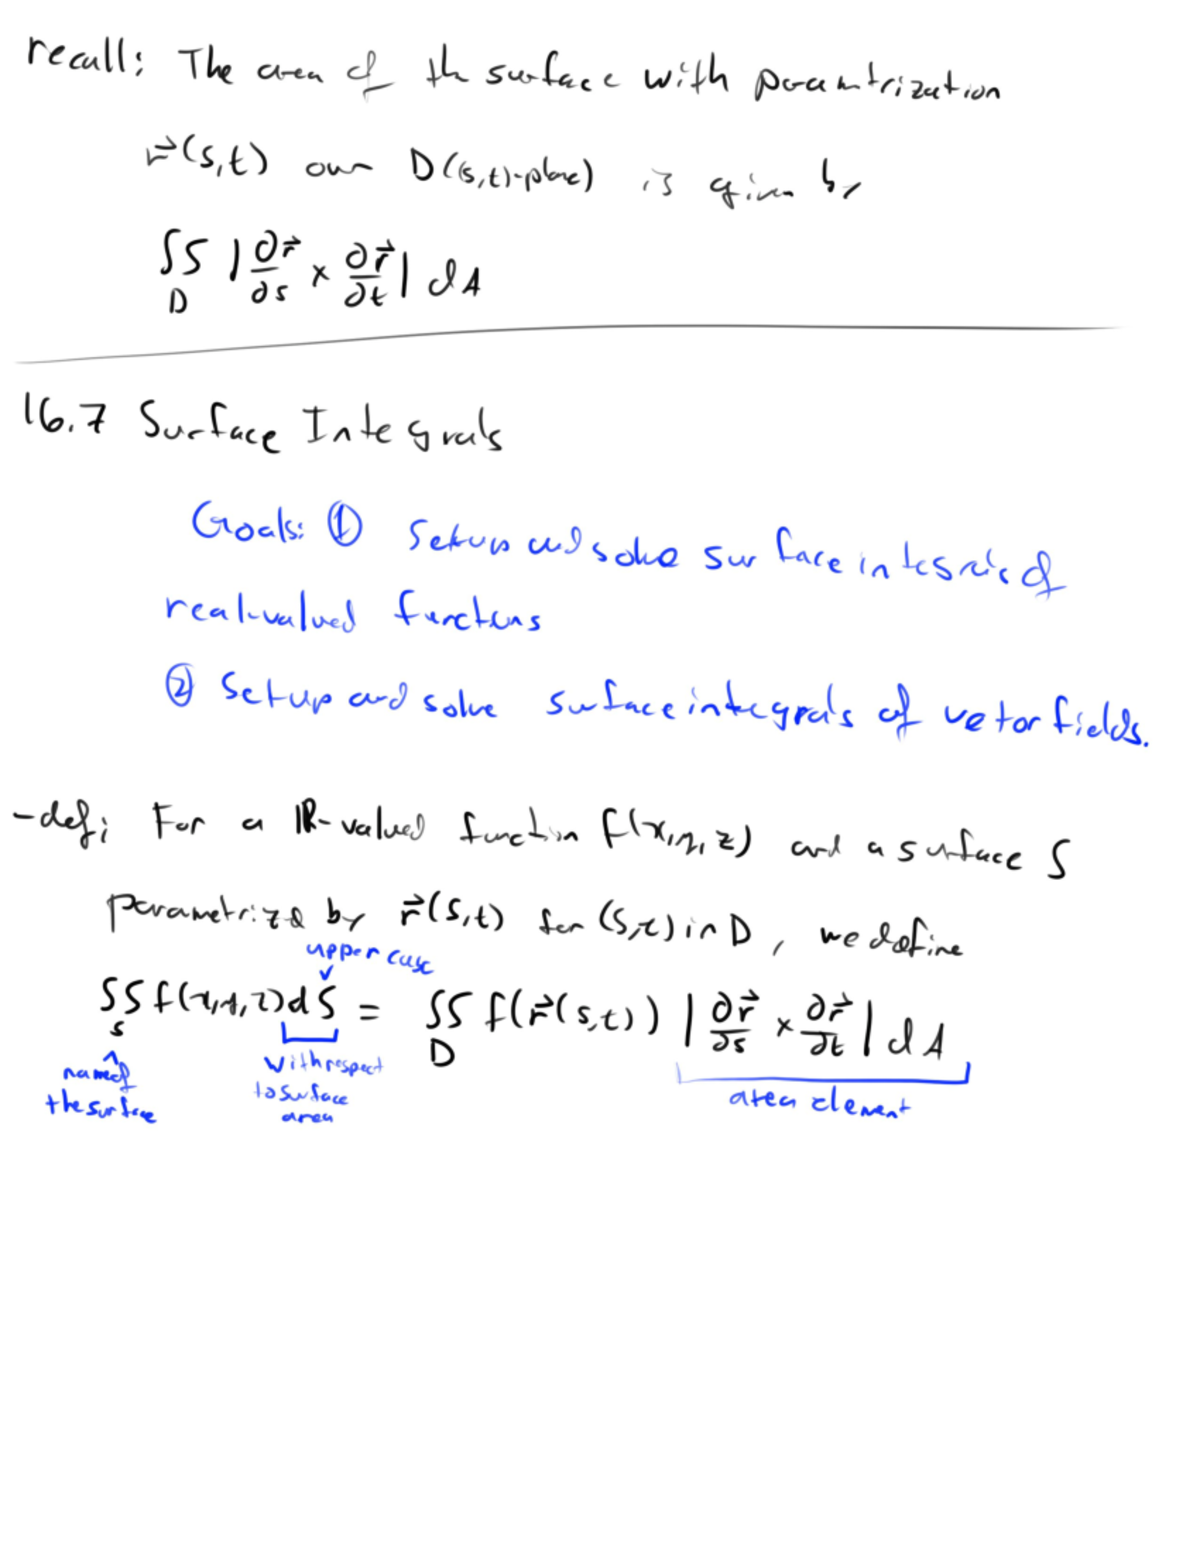 recall: The area of the surface with parametrization
r⃗(s,t) over D((s,t)-plane) is given by
∬_D |∂r⃗/∂s × ∂r⃗/∂t| dA
16.7 Surface Integrals
Goals: ① Setup and solve surface integrals of
real-valued functions
② Setup and solve surface integrals of vetor fields.
-def: For a ℝ-valued function f(x,y,z) and a surface S
parametrized by r⃗(s,t) for (s,t) in D, we define
upper case
∬_S f(x,y,z)dS = ∬_D f(r⃗(s,t)) |∂r⃗/∂s × ∂r⃗/∂t| dA
name of
the surface
with respect
to surface
area
area element